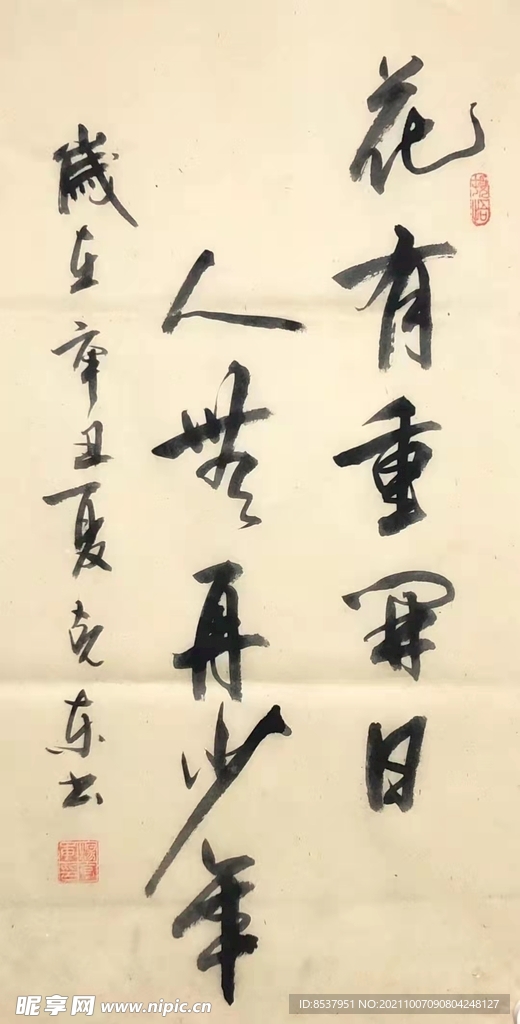 花有重開日
人無再少年
歲在辛丑夏克东书
昵享网 www.nipic.cn
ID:8537951 NO:20211007090804248127